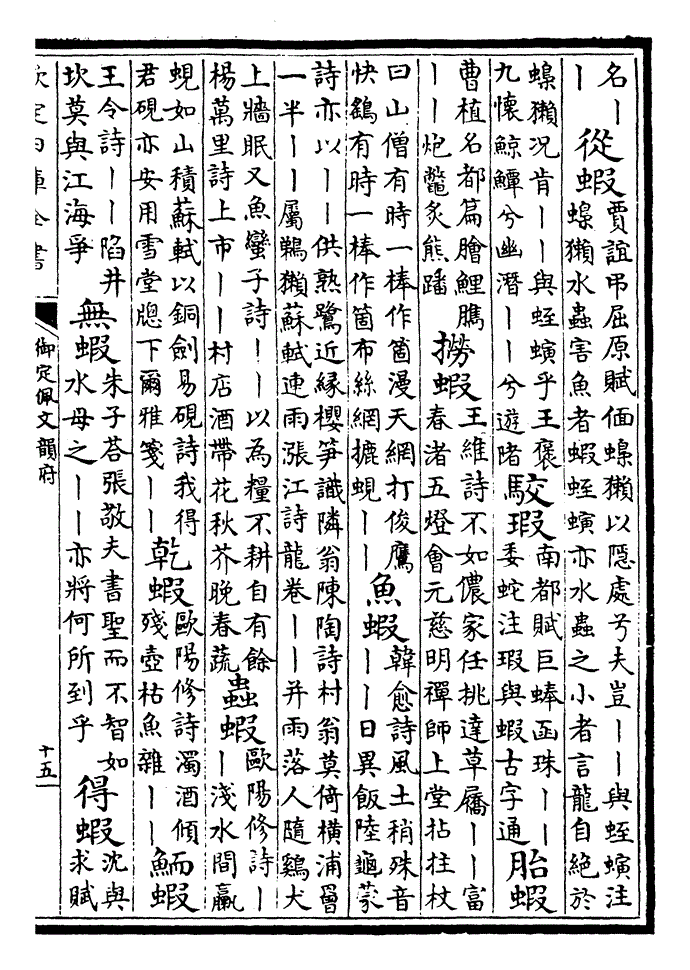 名丨
丨
從蝦
賈誼弔屈原賦偭蟂獺以隱處兮夫豈丨丨與蛭螾注
蟂獺水蟲害魚者蝦蛭螾亦水蟲之小者言龍自絕於
蟂獺況肯丨丨與蛭螾乎王褒
九懷鯨鱏兮幽潛丨丨兮遊陼
駮瑕
南都賦巨蜯函珠丨丨
委蛇注瑕與蝦古字通
胎蝦
曹植名都篇膾鯉臇
丨丨炮鼈炙熊蹯
撈蝦
王維詩不如儂家任挑達草屩丨丨富
春渚五燈會元慈明禪師上堂拈拄杖
曰山僧有時一棒作箇漫天網打俊鷹
快鷂有時一棒作箇布絲網摝蜆丨丨
魚蝦
韓愈詩風土稍殊音
丨丨日異飯陸龜蒙
詩亦以丨丨供熟鷺近緣櫻笋識隣翁陳陶詩村翁莫倚橫浦罾
一半丨丨屬鵜獺蘇軾連雨漲江詩龍卷丨丨并雨落人隨鷄犬
上牆眠又魚蠻子詩丨丨以為糧不耕自有餘
楊萬里詩上市丨丨村店酒帶花秋芥晚春蔬
蟲蝦
歐陽修詩丨
丨淺水間贏
蜆如山積蘇軾以銅劍易硯詩我得
君硯亦安用雪堂牕下爾雅箋丨丨
乾蝦
歐陽修詩濁酒傾
殘壺枯魚雜丨丨
鮞蝦
王令詩丨丨陷井
坎莫與江海爭
無蝦
朱子荅張敬夫書聖而不智如
水母之丨丨亦將何所到乎
得蝦
沈與
求賦
欽定四庫全書
御定佩文韻府
十五